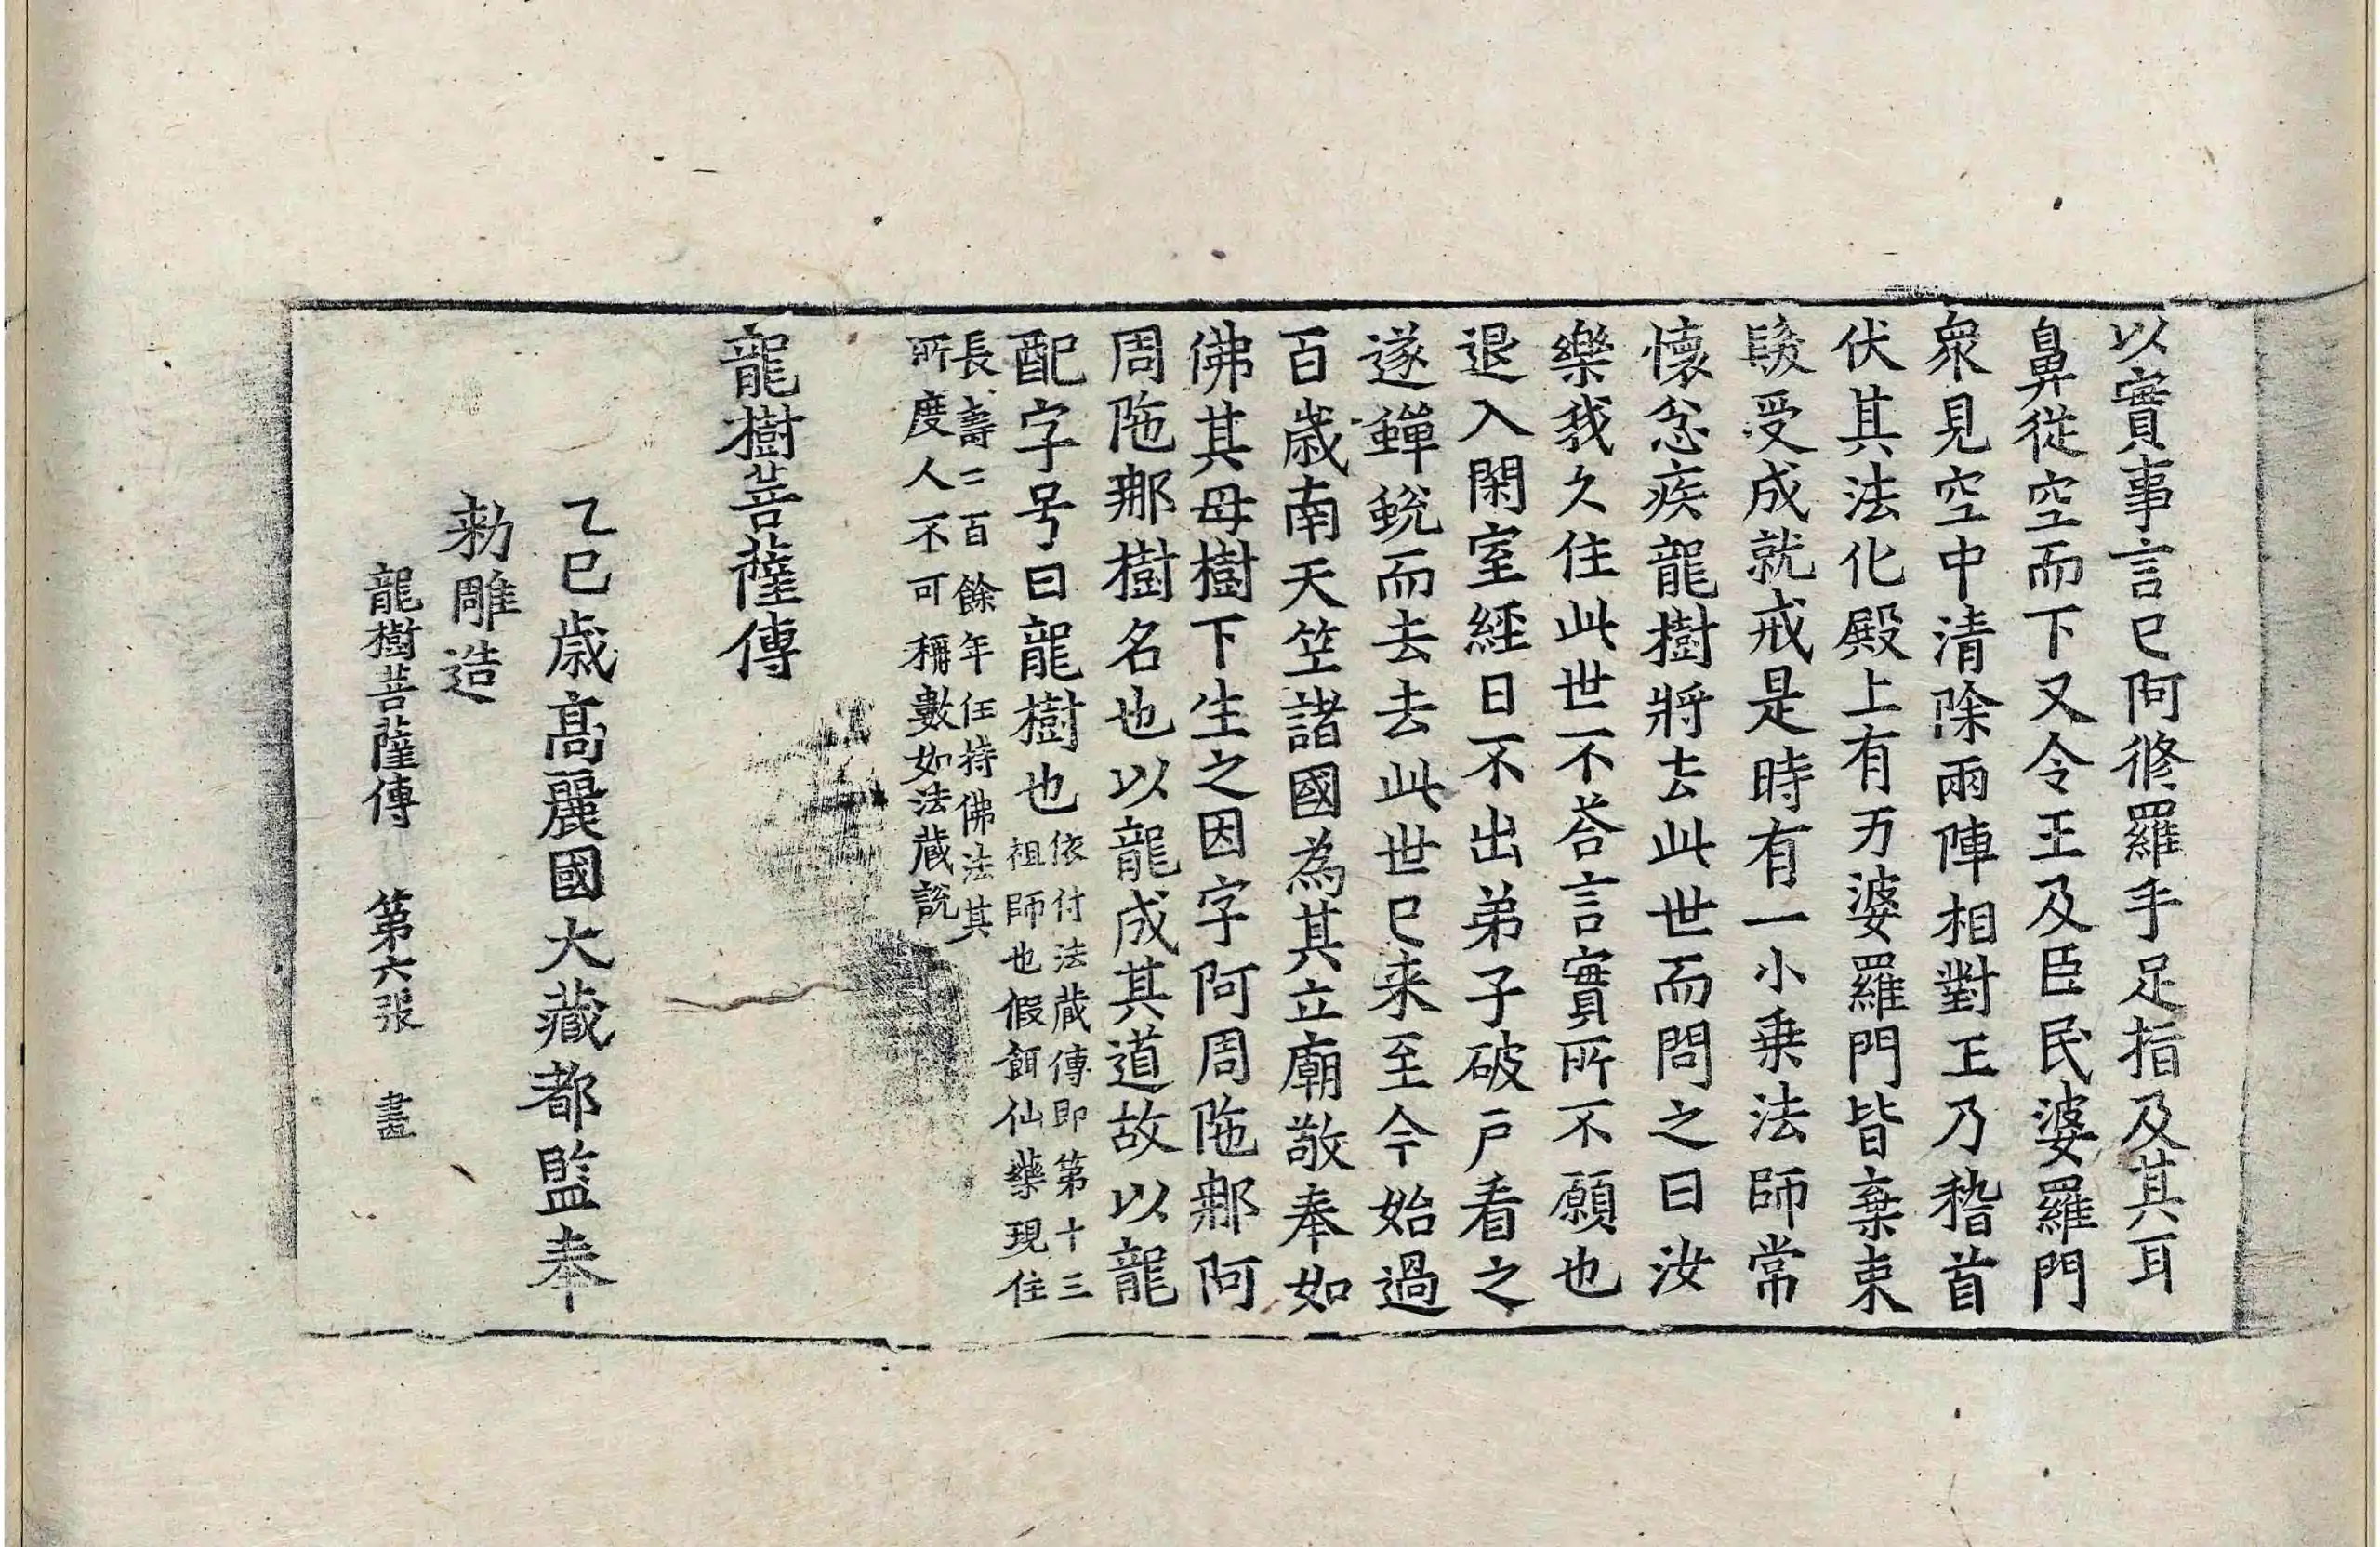 以實事言已阿修羅手足指及其耳
鼻從空而下又令王及臣民婆羅門
衆見空中清除兩陣相對王乃稽首
伏其法化殿上有万婆羅門皆棄束
髮受成就戒是時有一小乗法師常
懷忿疾龍樹將去此世而問之曰汝
樂我久住此世不荅言實所不願也
退入閑室經日不出弟子破戶看之
遂蟬蛻而去去此世已来至今始過
百歳南天竺諸國為其立廟敬奉如
佛其母樹下生之因字阿周陁𨚗阿
周陁𨚗樹名也以龍成其道故以龍
配字号曰龍樹也
依付法蔵傳即第十三
祖師也假餌仙藥現住
長壽二百餘年任持佛法其
所度人不可稱數如法蔵說
龍樹菩薩傳
乙巳歳髙麗國大藏都監奉
勑雕造
龍樹菩薩傳 第六張 畫